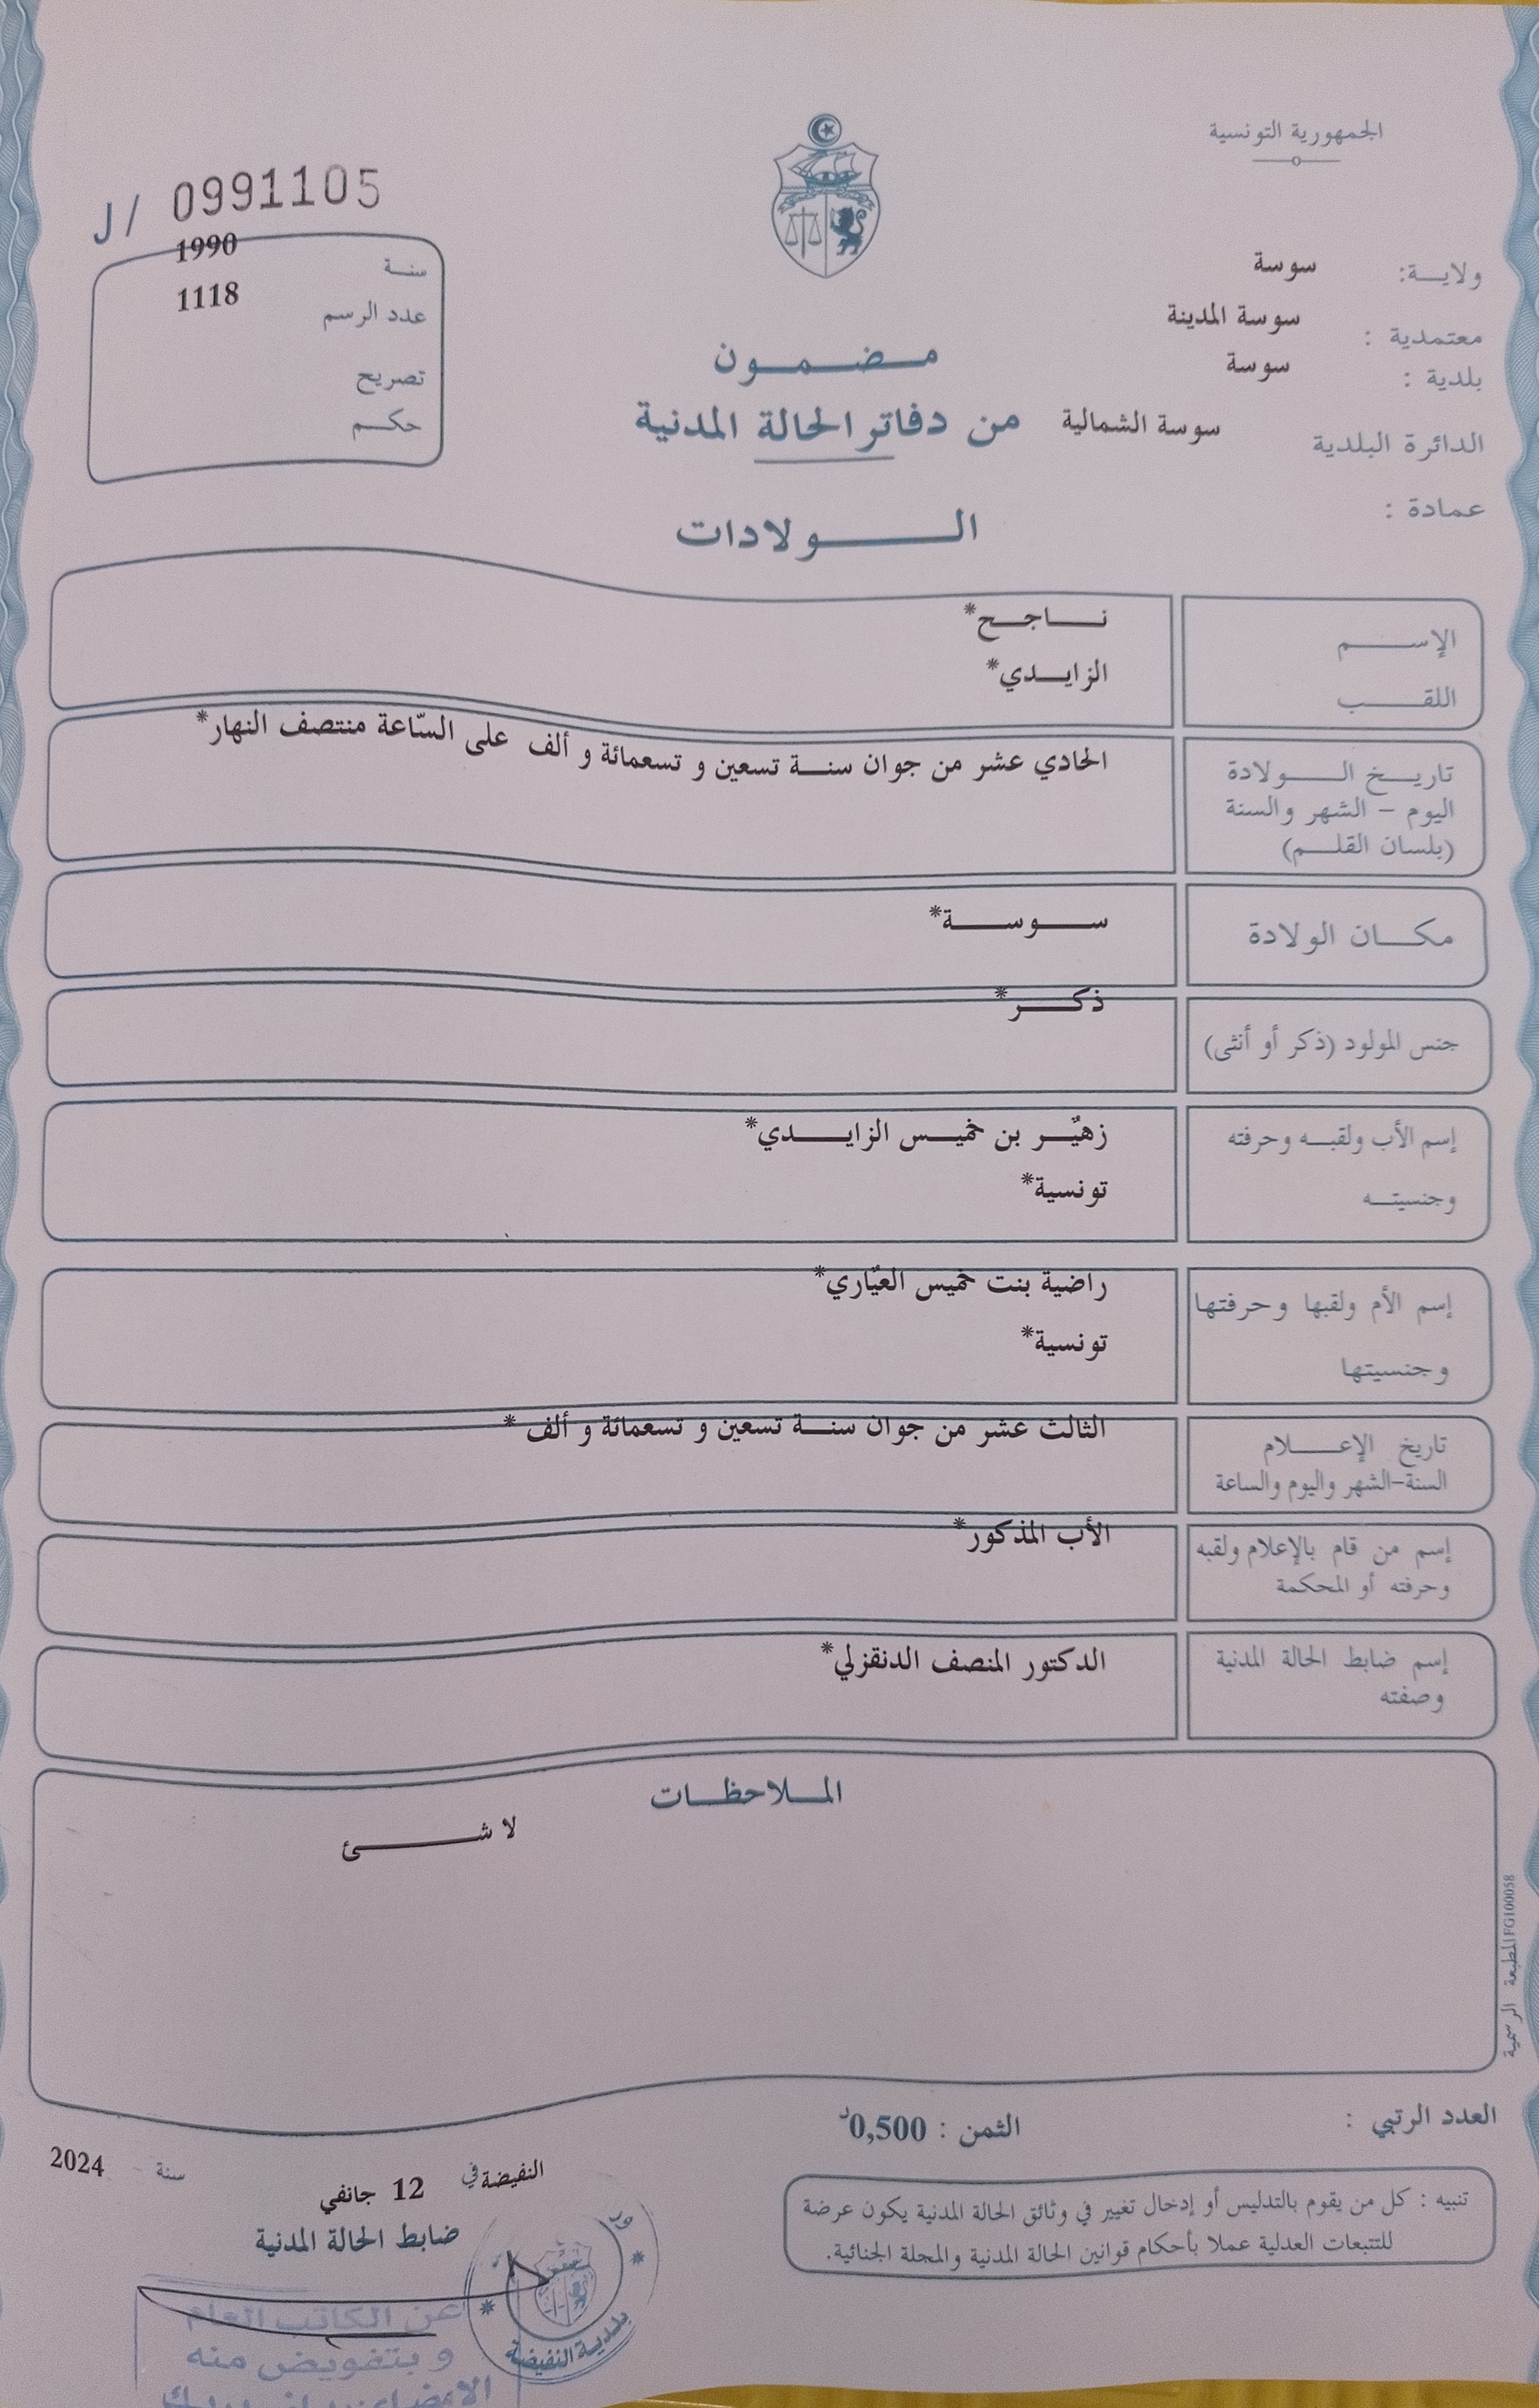 الجمهورية التونسية
J/ 0991105
سنة 1990
عدد الرسم 1118
تصريح
حكم
ولاية: سوسة
معتمدية : سوسة المدينة
بلدية : سوسة
الدائرة البلدية سوسة الشمالية
عمادة :
مضمون
من دفاتر الحالة المدنية
الولادات
الإسم ناجح*
اللقب الزايدي*
تاريخ الولادة
اليوم - الشهر والسنة
(بلسان القلم)
الحادي عشر من جوان سنة تسعين و تسعمائة و ألف على السّاعة منتصف النهار*
مكان الولادة سوسة*
جنس المولود (ذكر أو أنثى) ذكر*
إسم الأب ولقبه وحرفته زهيّر بن خميس الزايدي*
وجنسيته تونسية*
إسم الأم ولقبها وحرفتها راضية بنت خميس العيّاري*
وجنسيتها تونسية*
تاريخ الإعلام
السنة-الشهر واليوم والساعة
الثالث عشر من جوان سنة تسعين و تسعمائة و ألف *
إسم من قام بالإعلام ولقبه
وحرفته أو المحكمة
الأب المذكور*
إسم ضابط الحالة المدنية
وصفته
الدكتور المنصف الدنقزلي*
الملاحظات
لا شئ
المطبعة الرسمية FG100058
العدد الرتبي :
الثمن : 0,500د
تنبيه : كل من يقوم بالتدليس أو إدخال تغيير في وثائق الحالة المدنية يكون عرضة
للتتبعات العدلية عملا بأحكام قوانين الحالة المدنية والمجلة الجنائية.
النفيضة في 12 جانفي سنة 2024
ضابط الحالة المدنية
بلدية النفيضة
عن الكاتب العام
و بتفويض منه